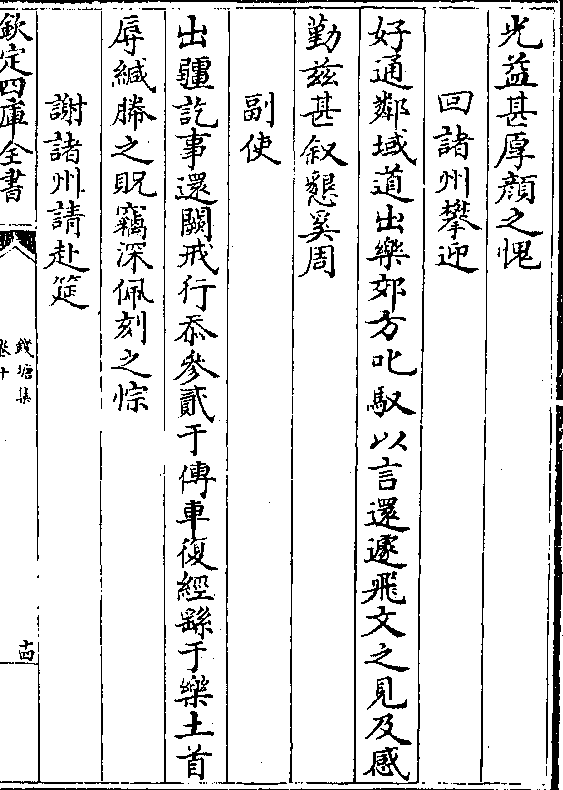 光益甚厚顔之愧
回諸州攀迎
好通鄰域道出樂郊方叱馭以言還遽飛文之見及感
勤兹甚叙懇奚周
副使
出疆訖事還闕戒行忝參貳于傳車復經繇于樂土首
辱緘牓之貺竊深佩刻之悰
謝諸州請赴筵
欽定四庫全書
錢塘集
卷十
十四